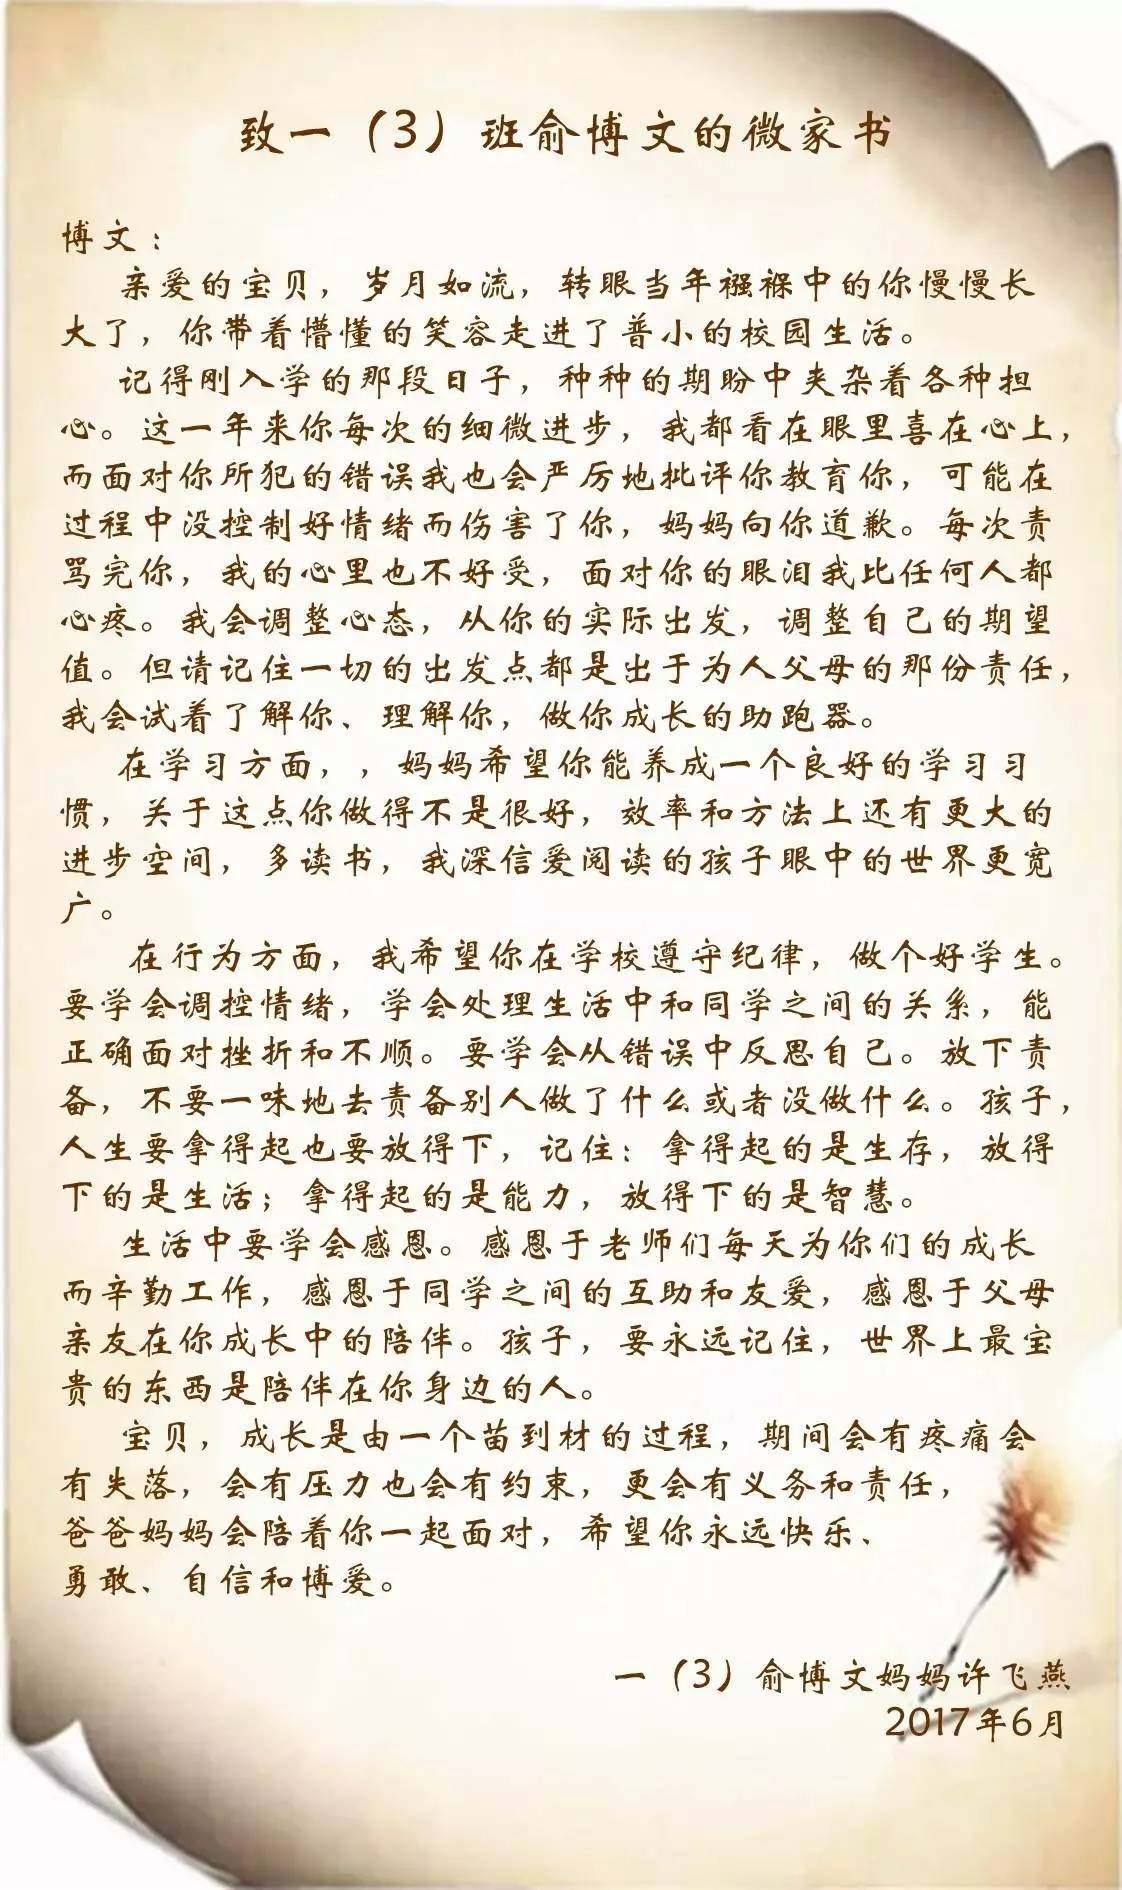 致一（3）班俞博文的微家书
博文：
亲爱的宝贝，岁月如流，转眼当年襁褓中的你慢慢长
大了，你带着懵懂的笑容走进了普小的校园生活。
记得刚入学的那段日子，种种的期盼中夹杂着各种担
心。这一年来你每次的细微进步，我都看在眼里喜在心上，
而面对你所犯的错误我也会严厉地批评你教育你，可能在
过程中没控制好情绪而伤害了你，妈妈向你道歉。每次责
骂完你，我的心里也不好受，面对你的眼泪我比任何人都
心疼。我会调整心态，从你的实际出发，调整自己的期望
值。但请记住一切的出发点都是出于为人父母的那份责任，
我会试着了解你、理解你，做你成长的助跑器。
在学习方面，，妈妈希望你能养成一个良好的学习习
惯，关于这点你做得不是很好，效率和方法上还有更大的
进步空间，多读书，我深信爱阅读的孩子眼中的世界更宽
广。
在行为方面，我希望你在学校遵守纪律，做个好学生。
要学会调控情绪，学会处理生活中和同学之间的关系，能
正确面对挫折和不顺。要学会从错误中反思自己。放下责
备，不要一味地去责备别人做了什么或者没做什么。孩子，
人生要拿得起也要放得下，记住：拿得起的是生存，放得
下的是生活；拿得起的是能力，放得下的是智慧。
生活中要学会感恩。感恩于老师们每天为你们的成长
而辛勤工作，感恩于同学之间的互助和友爱，感恩于父母
亲友在你成长中的陪伴。孩子，要永远记住，世界上最宝
贵的东西是陪伴在你身边的人。
宝贝，成长是由一个苗到材的过程，期间会有疼痛会
有失落，会有压力也会有约束，更会有义务和责任，
爸爸妈妈会陪着你一起面对，希望你永远快乐、
勇敢、自信和博爱。
一（3）俞博文妈妈许飞燕
2017年6月